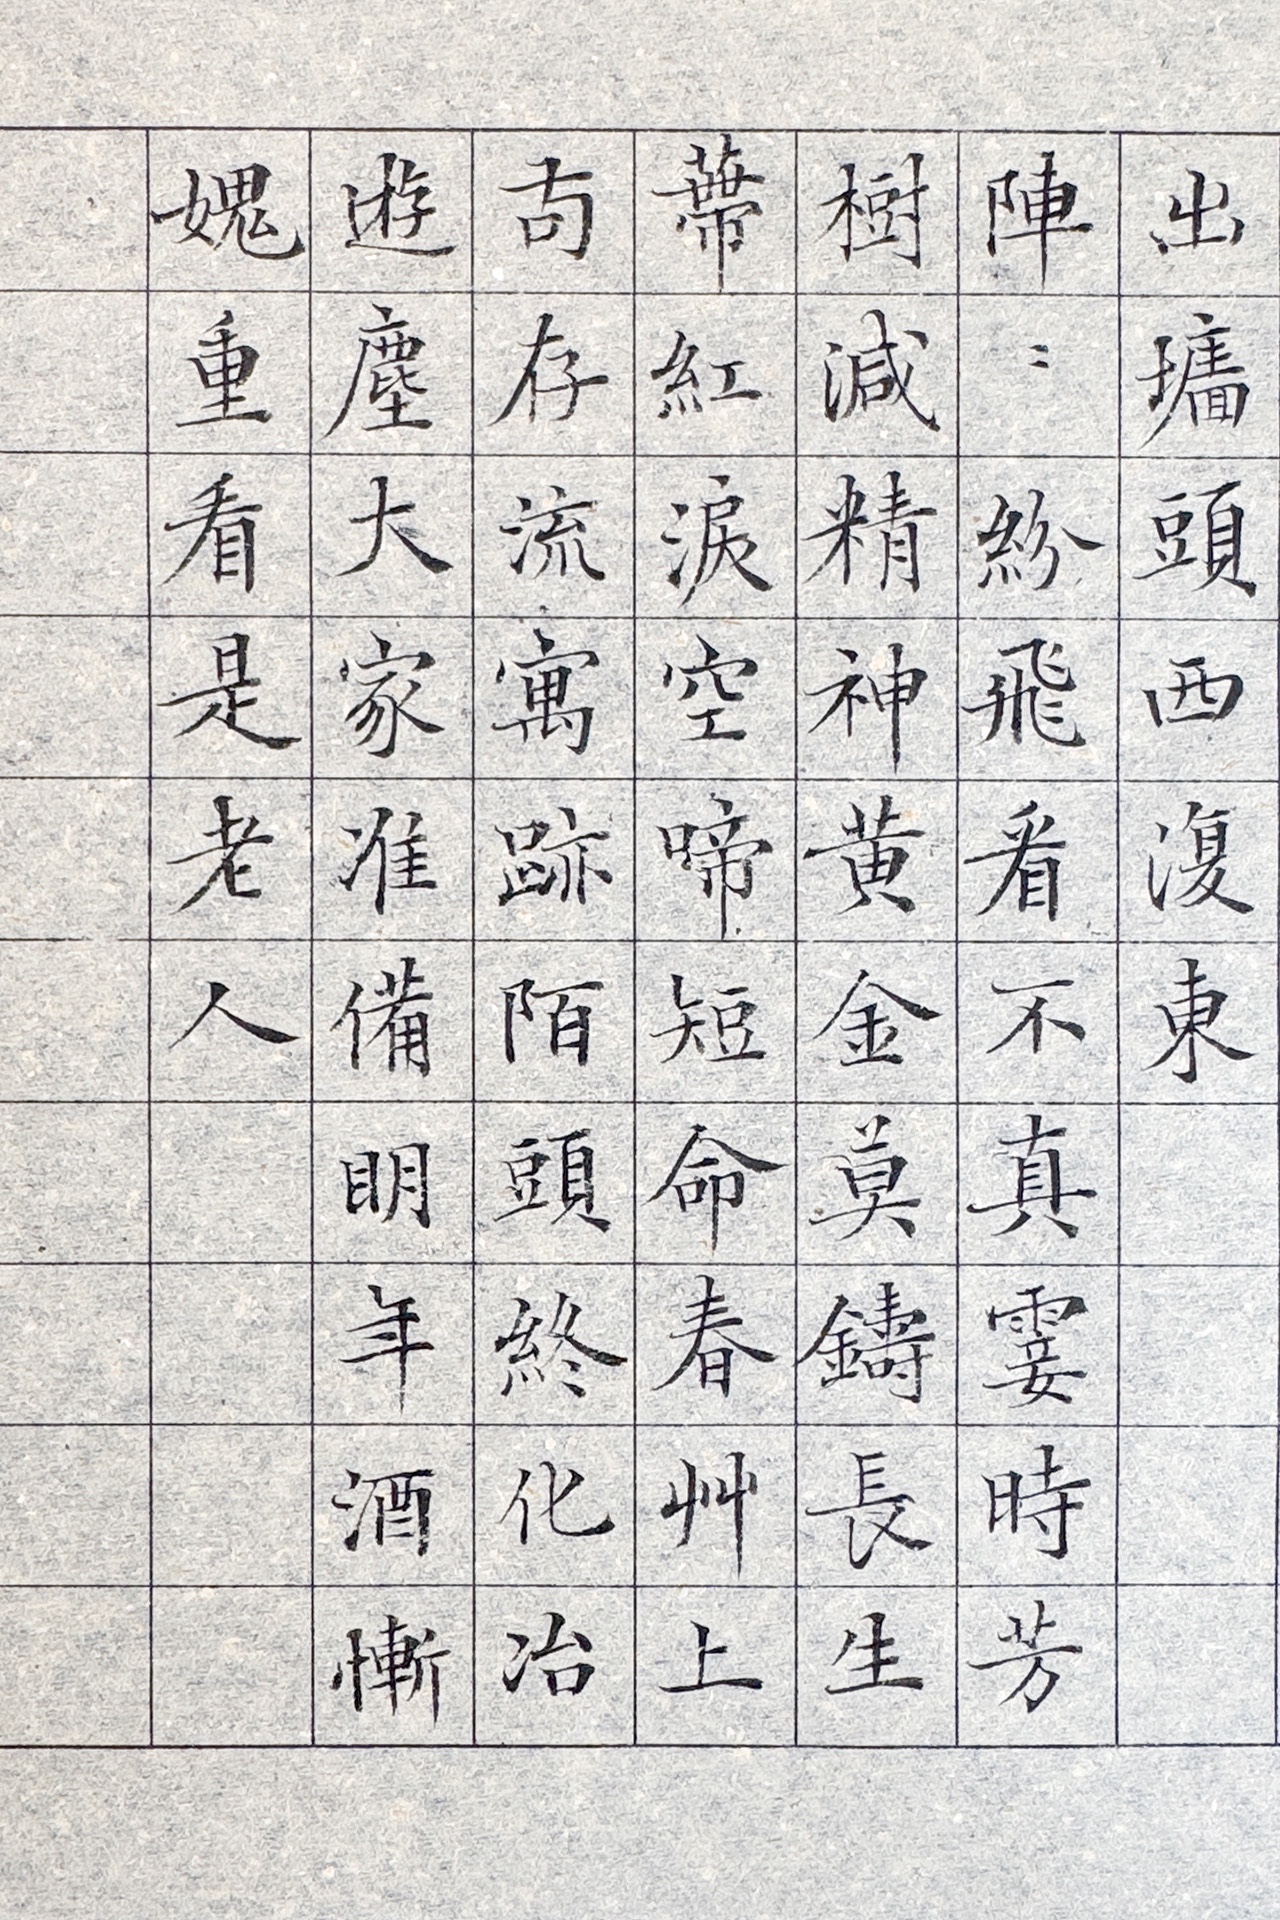 出墻頭西復東
陣〻紛飛看不真霎時芳
樹減精神黃金莫鑄長生
蒂紅淚空啼短命春艸上
苟存流寓跡陌頭終化冶
遊塵大家准備明年酒慚
媿重看是老人